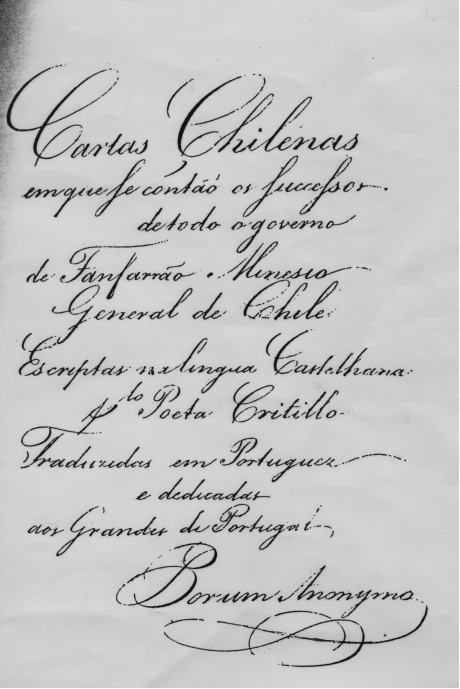 Cartas Chilenas
em que se contaõ os successos.
de todo o governo
de Fanfarrão Minesio
General de Chile
Escriptas na lingua Castelhana
p.lo Poeta Critillo
Traduzidas em Portuguez
e dedicadas
aos Grandes de Portugal
Por um Anonymo